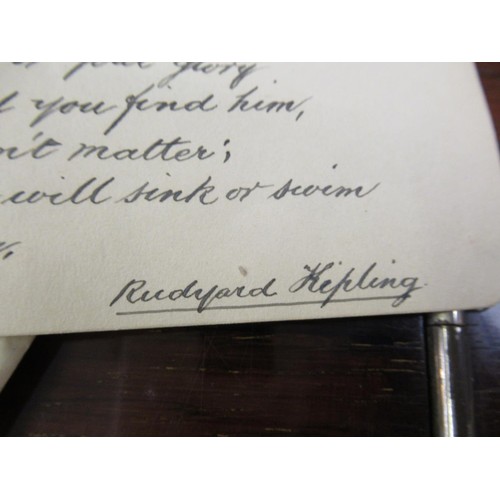 your glory
you find him,
n't matter;
will sink or swim
Rudyard Kipling